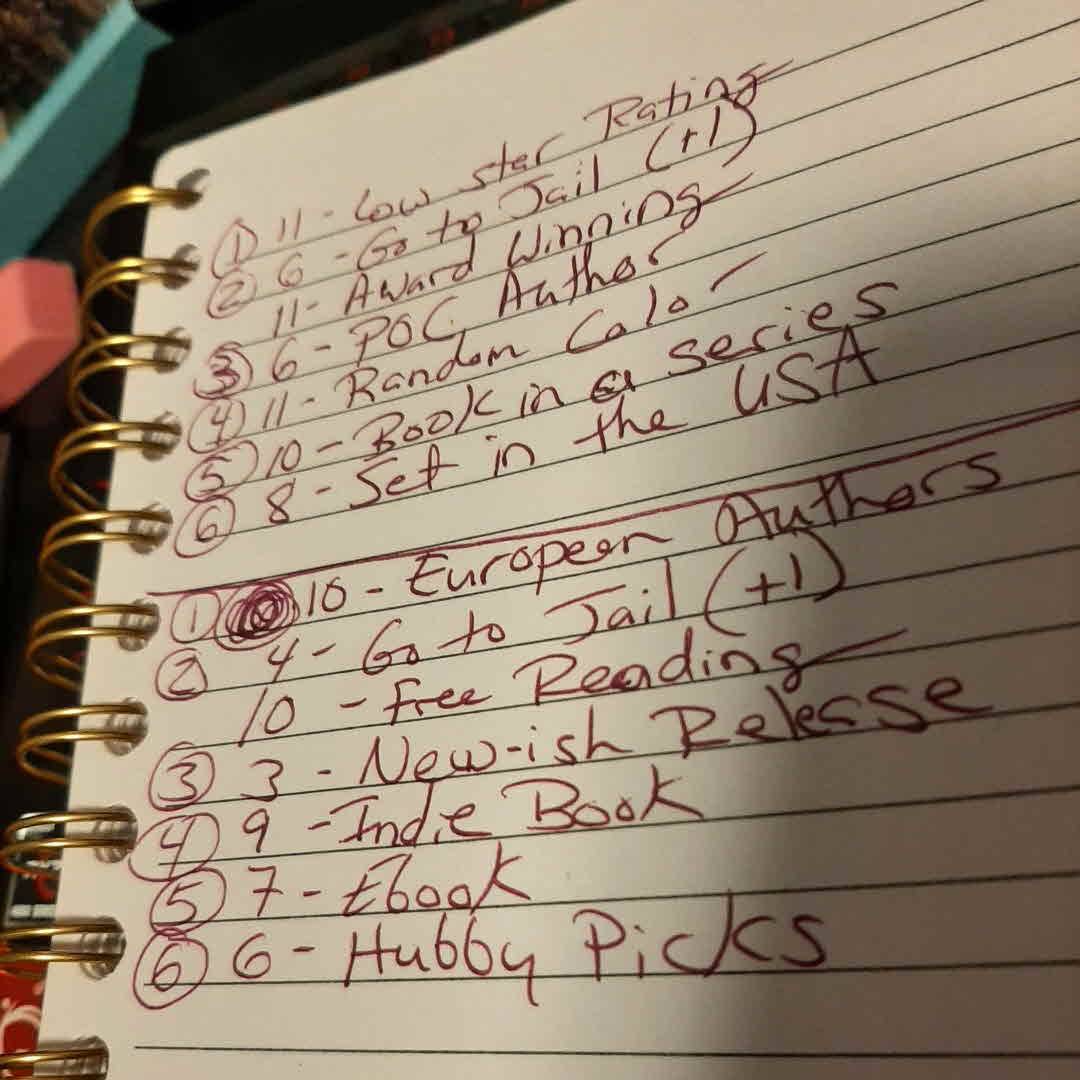 ① 11 - Low star Rating
② 6 - Go to Jail (+1)
11 - Award Winning
③ 6 - POC Author
④ 11 - Random Color
⑤ 10 - Book in a series
⑥ 8 - Set in the USA
① 10 - European Authors
② 4 - Go to Jail (+1)
10 - Free Reading
③ 3 - New-ish Release
④ 9 - Indie Book
⑤ 7 - Ebook
⑥ 6 - Hubby Picks